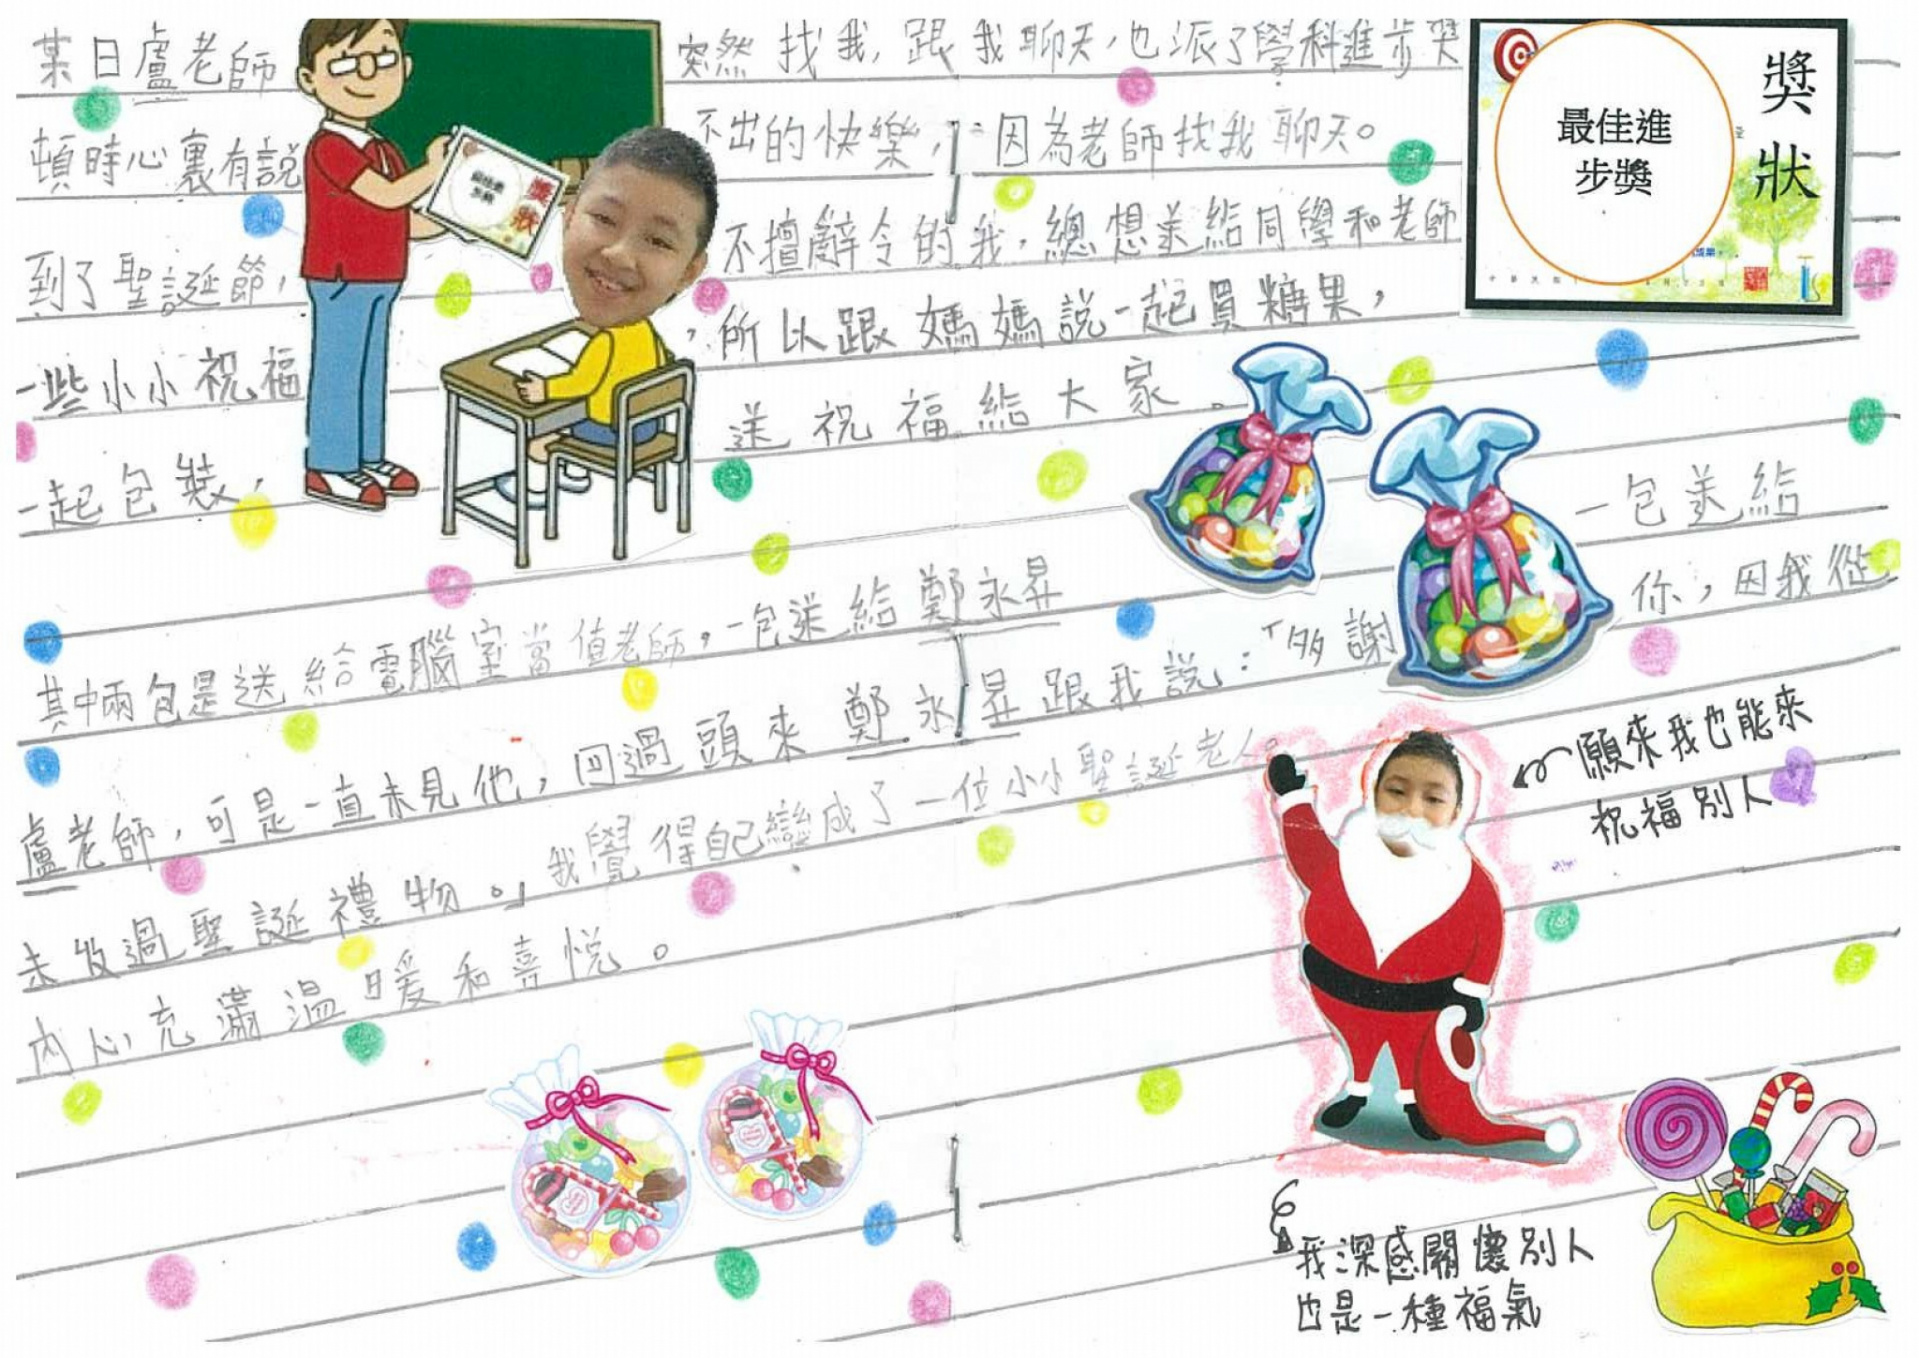 某日盧老師突然找我，跟我聊天，也派了學科進步獎
頓時心裏有說不出的快樂，因為老師找我聊天。
到了聖誕節，不擅辭令的我，總想送給同學和老師
一些小小祝福，所以跟媽媽說一起買糖果，
一起包裝，送祝福給大家。
其中兩包是送給電腦室當值老師，一包送給鄭永昇一包送給
盧老師，可是一直未見他，回過頭來鄭永昇跟我說：「多謝你，因我從
未收過聖誕禮物。」我覺得自己變成了一位小小聖誕老人。
內心充滿溫暖和喜悅。
獎狀
最佳進
步獎
獎狀
最佳進
步獎
願來我也能來
祝福別人
我深感關懷別人
也是一種福氣